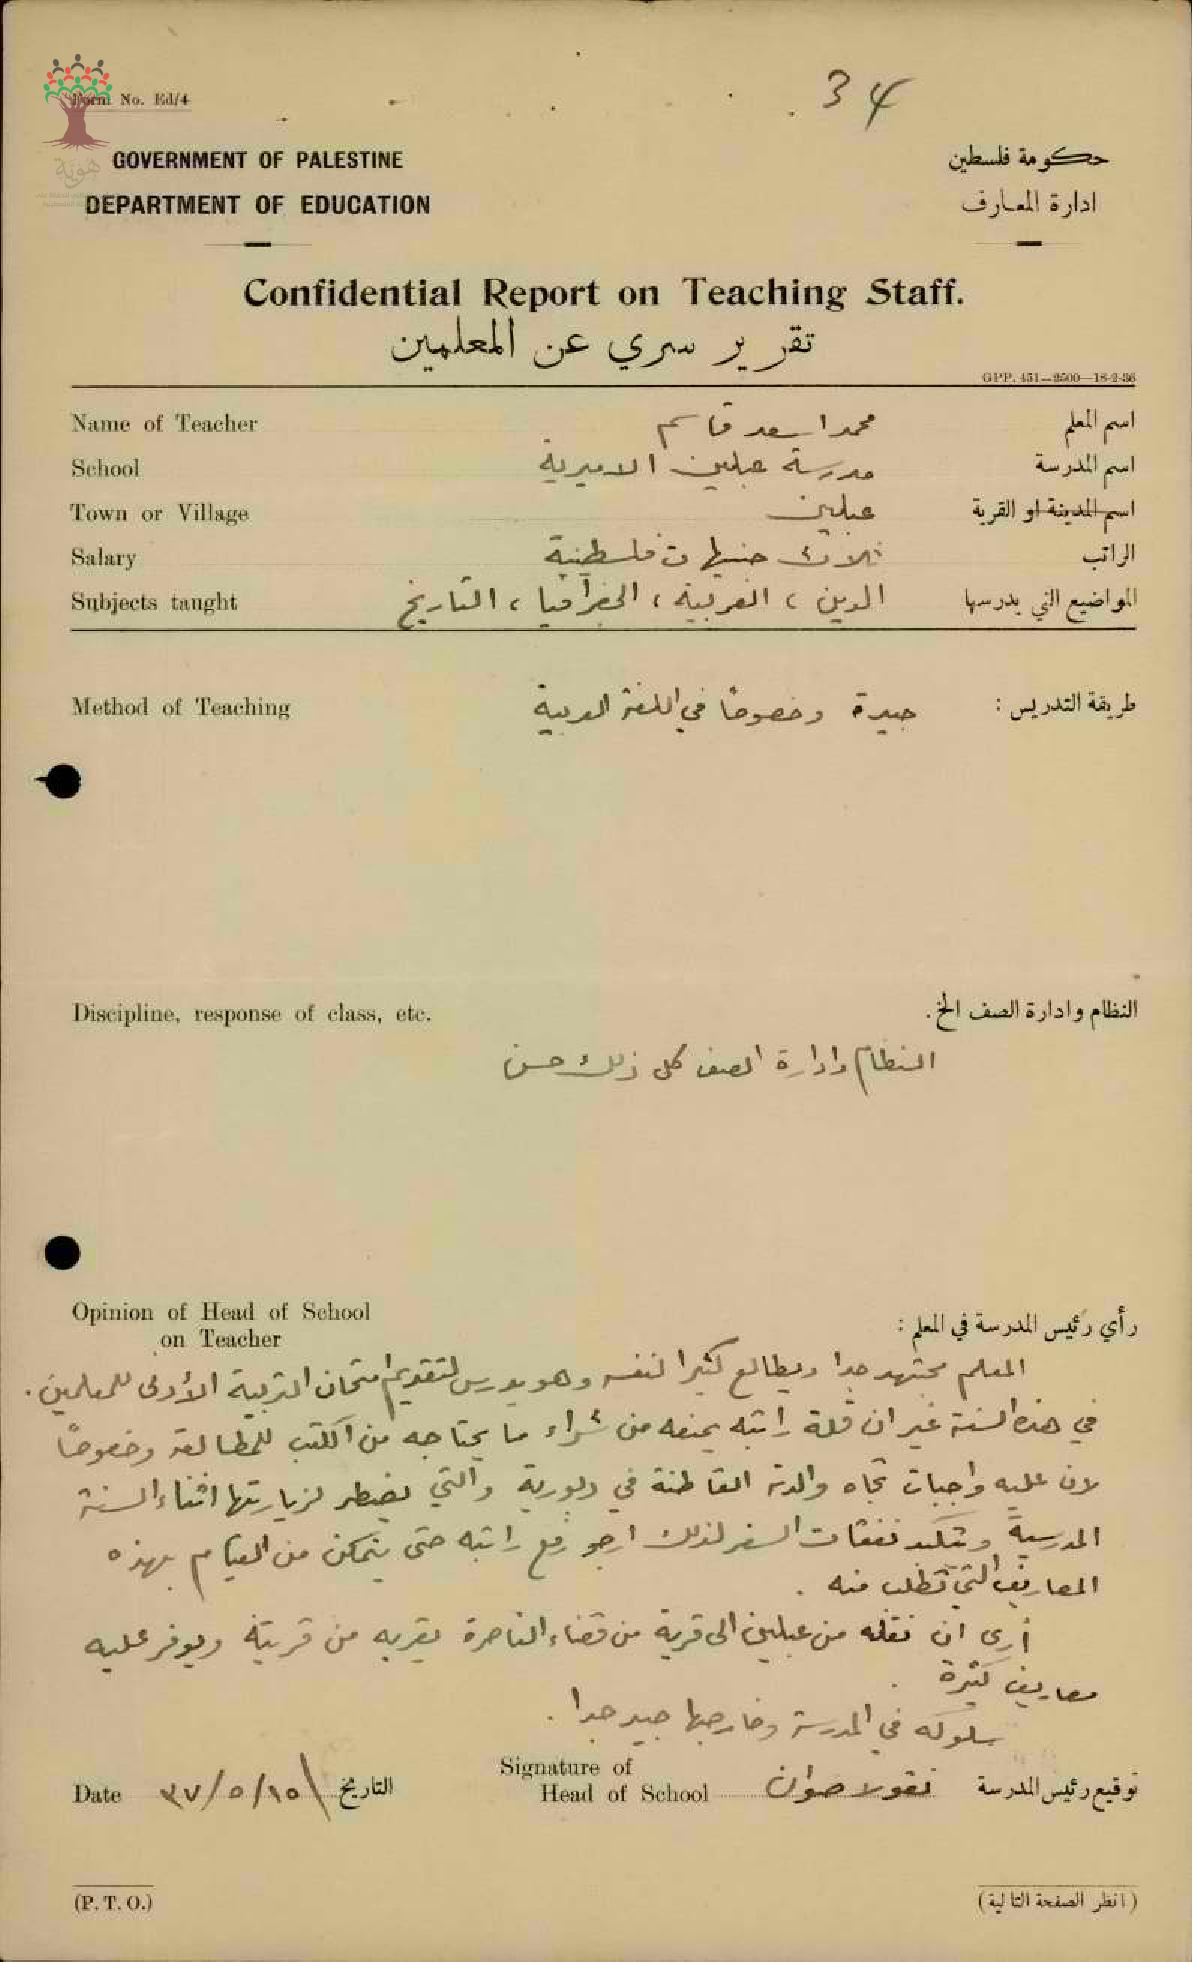 34
Form No. Ed/4
هوية
GOVERNMENT OF PALESTINE
حكومة فلسطين
DEPARTMENT OF EDUCATION
ادارة المعارف
Confidential Report on Teaching Staff.
تقرير سري عن المعلمين
GPP. 451—2500—18-2-36
Name of Teacher محمد اسعد قاسم اسم المعلم
School مدرسة عبلين الاميرية اسم المدرسة
Town or Village عبلين اسم المدينة او القرية
Salary ثلاث جنيهات فلسطينية الراتب
Subjects taught الدين ، العربية ، الجغرافيا ، التاريخ المواضيع التي يدرسها
Method of Teaching جيدة وخصوصًا في اللغة العربية طريقة التدريس :
Discipline, response of class, etc. النظام وادارة الصف الخ .
النظام وادارة الصف كل ذلك حسن
Opinion of Head of School
on Teacher
رأي رئيس المدرسة في المعلم :
المعلم مجتهد جدا ويطالع كثيرا لنفسه وهو يدرس لتقديم امتحان التربية الأولى للمعلمين .
في هذه السنة غير ان قلة راتبه يمنعه من شراء ما يحتاجه من الكتب للمطالعة وخصوصًا
لان عليه واجبات تجاه والدته القاطنة في دبورية والتي يضطر لزيارتها اثناء السنة
المدرسية ويتكبد نفقات السفر لذلك ارجو رفع راتبه حتى يتمكن من القيام بهذه
المصاريف التي تطلب منه .
أرى ان نقله من عبلين الى قرية من قضاء الناصرة يقربه من قريته ويوفر عليه
مصاريف كثيرة .
سلوكه في المدرسة وخارجها جيد جدا .
Signature of
Head of School نقولا صوان توقيع رئيس المدرسة
Date ٣٧/٥/١٥ التاريخ
(P. T. O.)
(انظر الصفحة التالية)